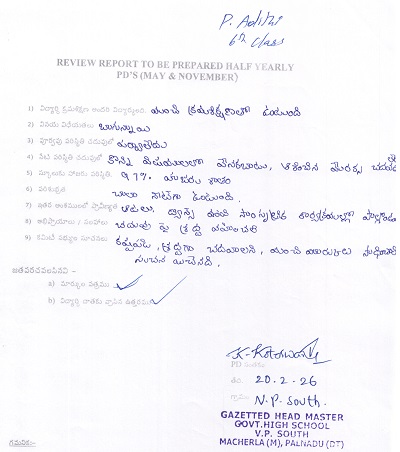 P. Adithi
6th Class
REVIEW REPORT TO BE PREPARED HALF YEARLY
PD'S (MAY & NOVEMBER)
1) విద్యార్థి క్రమశిక్షణ మంచి క్రమశిక్షణలో ఉంటుంది
2) వినయ విధేయతలు బాగున్నాయి
3) పూర్వపు పరిస్థితి చదువులో పర్వాలేదు
4) నేటి పరిస్థితి చదువులో కొన్ని విషయాలలో వెనకబాటు,
5) స్కూలుకు హాజరు పరిస్థితి. 97% హాజరు శాతం
6) పరిశుభ్రత చాలా నీట్‌గా ఉంటుంది.
7) ఇతర అంశములలో ప్రావీణ్యత ఆటలు, డ్యాన్స్ వంటి సాంస్కృతిక కార్యక్రమాల్లో
8) అభిప్రాయాలు / సలహాలు చదువు పై శ్రద్ధ వహించాలి
9) కమిటీ సభ్యుల సూచనలు కష్టపడి, శ్రద్ధగా చదవాలని, మంచి మార్కులు
సూచన ఇచ్చినది.
జతపరచవలసినవి -
a) మార్కుల పత్రము
b) విద్యార్థి దాతకు వ్రాసిన ఉత్తరము
PD సంతకం
తేది 20-2-26
గ్రామం N.P. South.
GAZETTED HEAD MASTER
GOVT.HIGH SCHOOL
V.P. SOUTH
MACHERLA (M), PALNADU (DT)
గమనిక:-